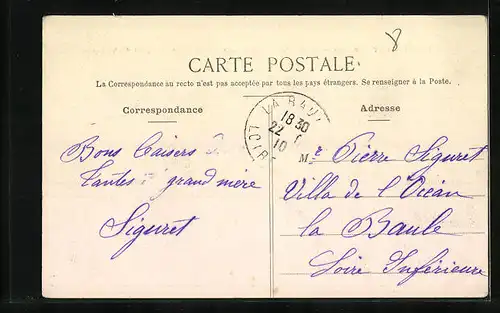 8
CARTE POSTALE
La Correspondance au recto n'est pas acceptée par tous les pays étrangers. Se renseigner à la Poste.
Correspondance
Adresse
LA BAU
18 30
22
10
LOIR
Bons baisers
Tantes grand mère
Siguret
Mr Pierre Siguret
Villa de l'Océan
la Baule
Loire Inférieure